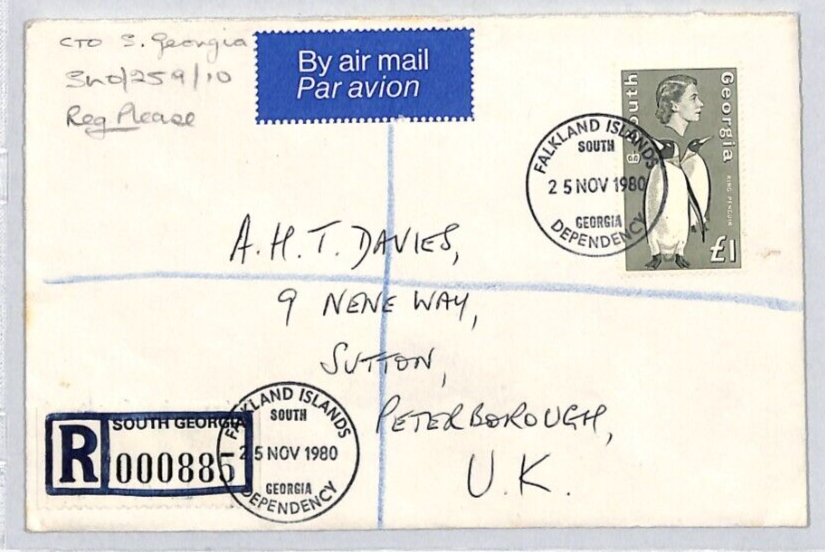 CTO S. Georgia
Reg Please
By air mail
Par avion
South Georgia
KING PENGUIN
£1
FALKLAND ISLANDS
SOUTH
25 NOV 1980
GEORGIA
DEPENDENCY
A.H.T. DAVIES,
9 NENE WAY,
SUTTON,
PETERBOROUGH,
U.K.
R
SOUTH GEORGIA
000885
FALKLAND ISLANDS
SOUTH
25 NOV 1980
GEORGIA
DEPENDENCY